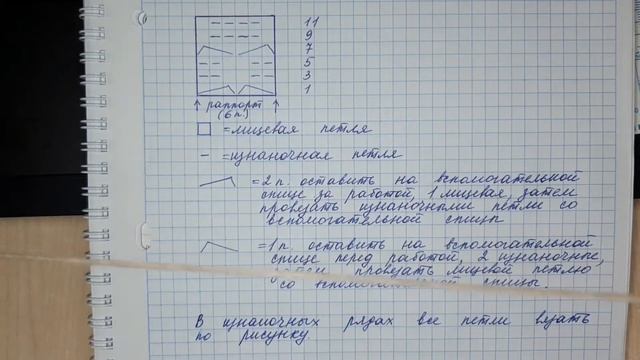 11
9
7
5
3
1
раппорт
(6 п.)
= лицевая петля
- = изнаночная петля
= 2 п. оставить на вспомогательной
спице за работой, 1 лицевая, затем
провязать изнаночными петли со
вспомогательной спицы
= 1 п. оставить на вспомогательной
спице перед работой, 2 изнаночные,
затем провязать лицевой петлю
со вспомогательной спицы.
В изнаночных рядах все петли вязать
по рисунку.